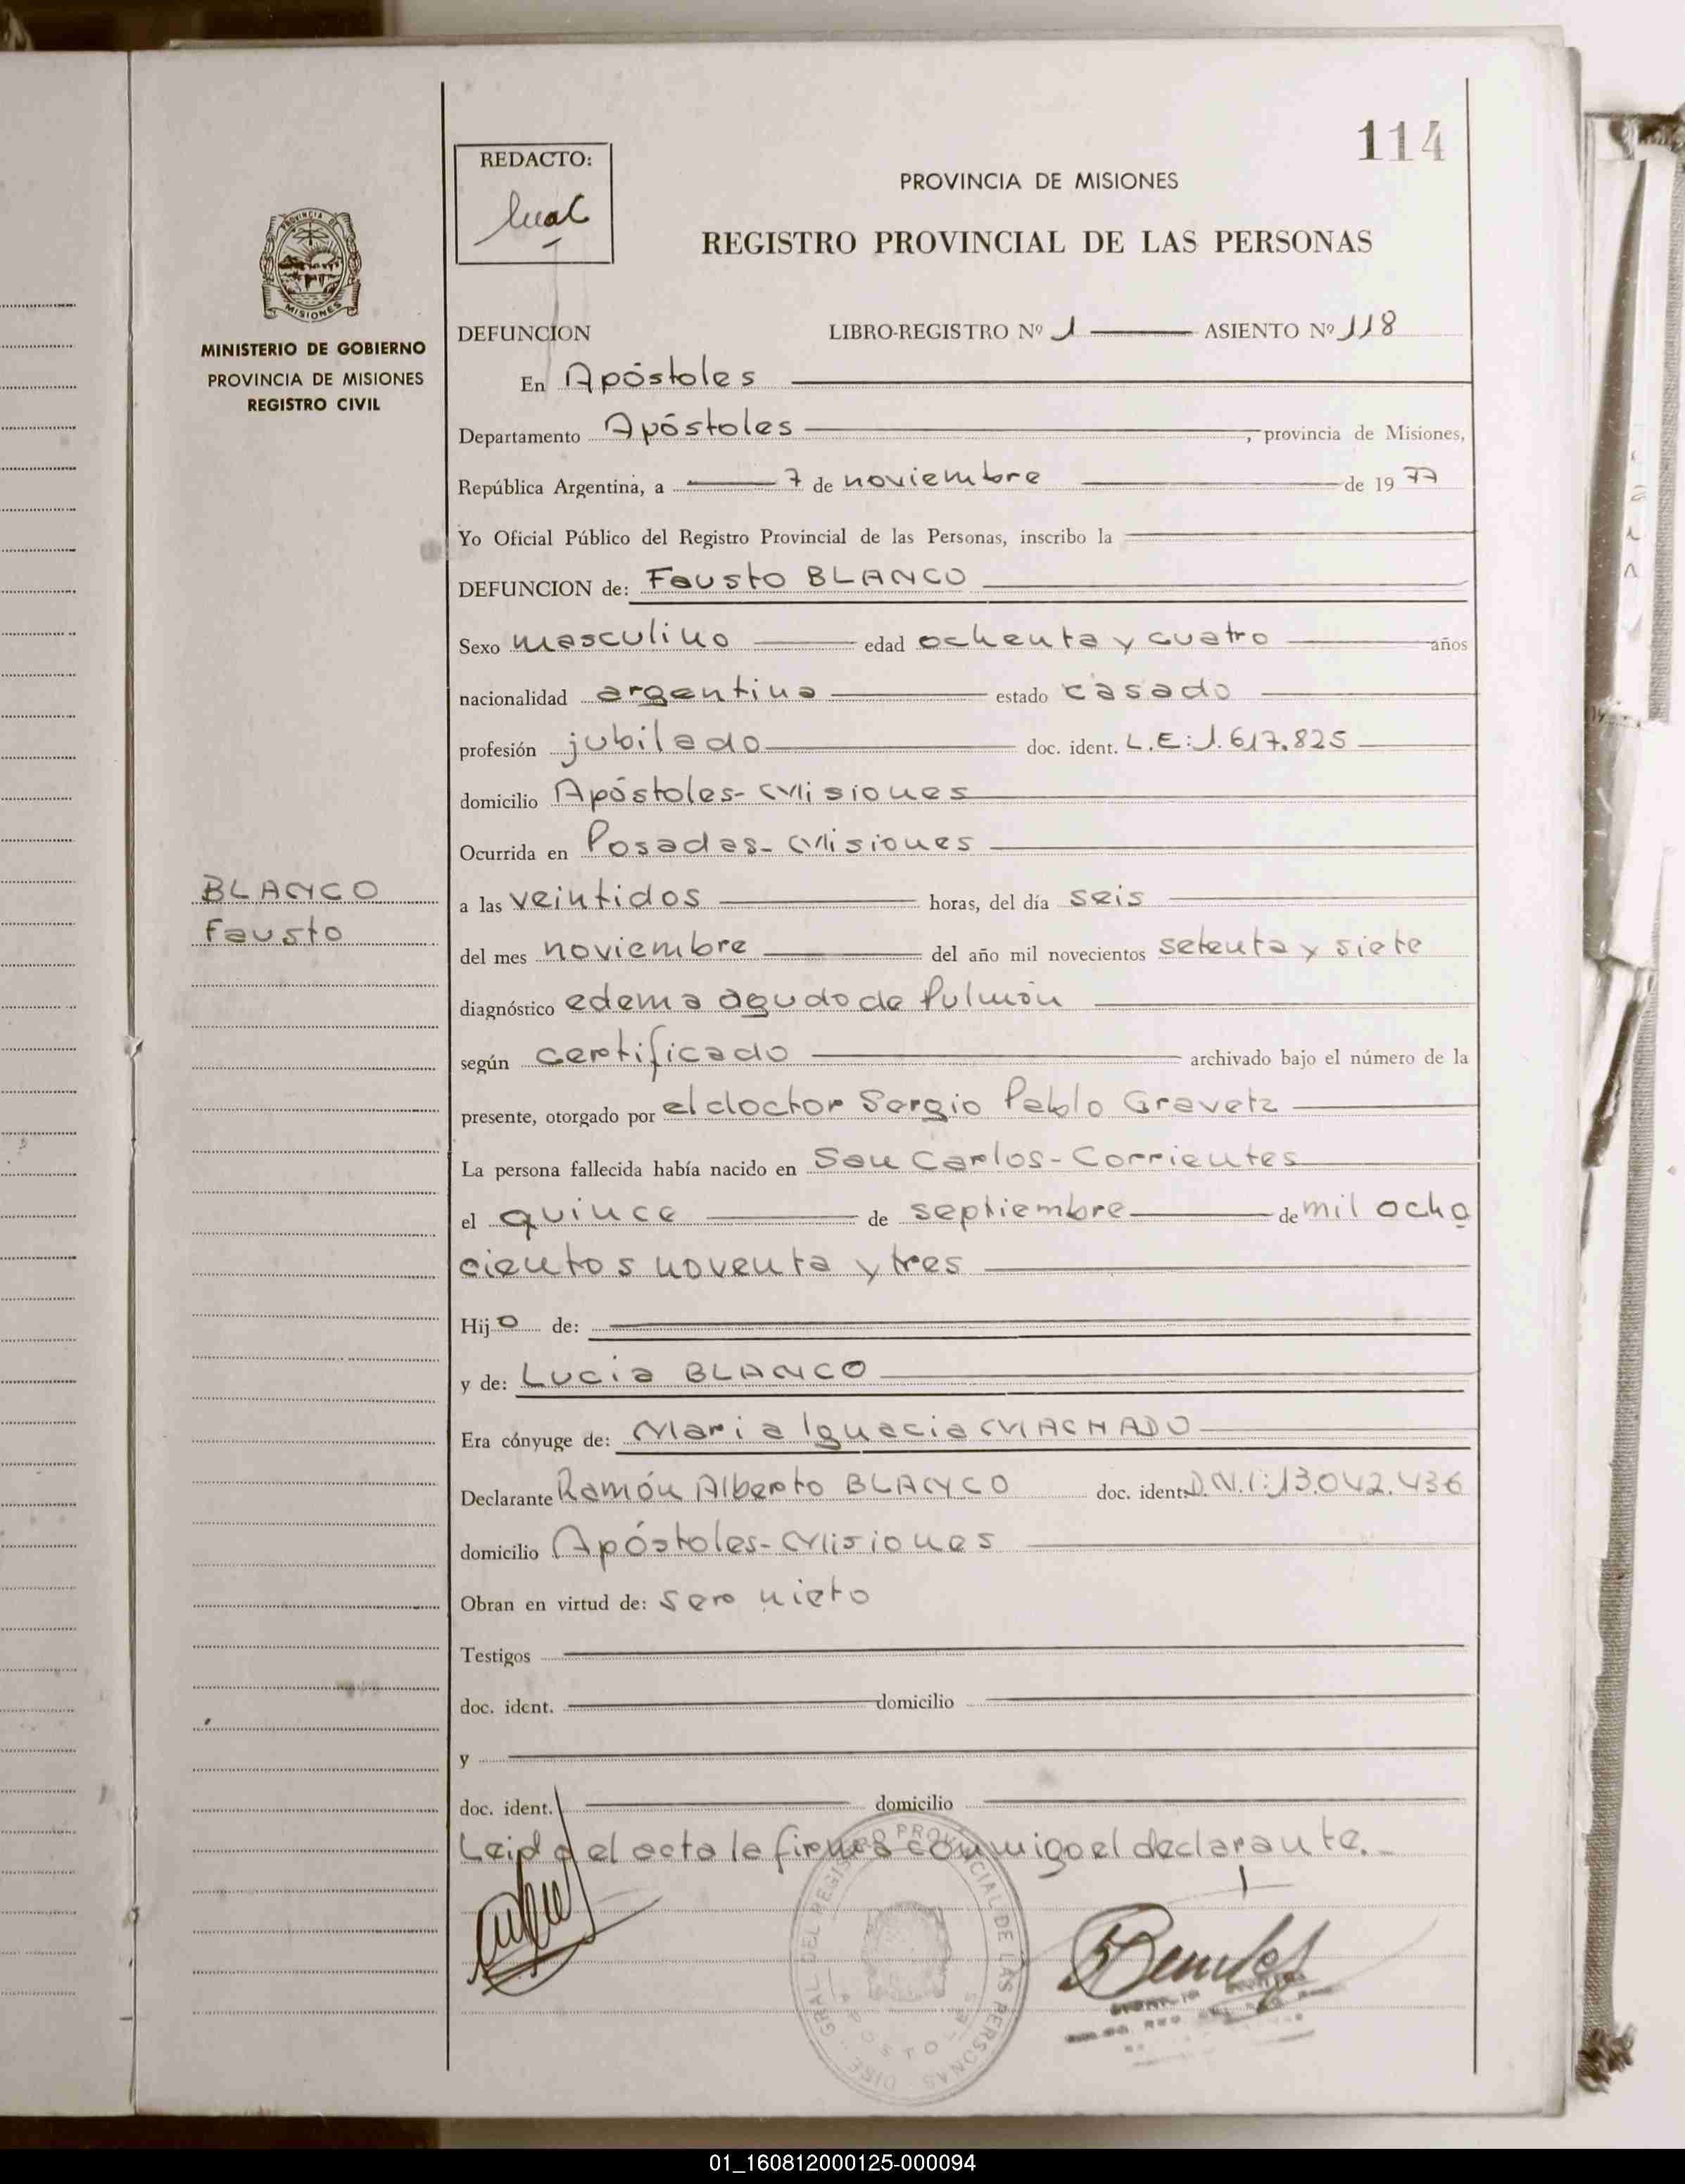 114
REDACTO:
PROVINCIA DE MISIONES
REGISTRO PROVINCIAL DE LAS PERSONAS
PROVINCIA DE
MISIONES
MINISTERIO DE GOBIERNO
PROVINCIA DE MISIONES
REGISTRO CIVIL
DEFUNCION LIBRO-REGISTRO Nº 1 ASIENTO Nº 118
En Apóstoles
Departamento Apóstoles, provincia de Misiones,
República Argentina, a 7 de noviembre de 1977
Yo Oficial Público del Registro Provincial de las Personas, inscribo la
DEFUNCION de: Fausto BLANCO
Sexo masculino edad ochenta y cuatro años
nacionalidad argentina estado casado
profesión jubilado doc. ident. L.E:1.617.825
domicilio Apóstoles-Misiones
Ocurrida en Posadas-Misiones
BLANCO
Fausto
a las veintidos horas, del día seis
del mes noviembre del año mil novecientos setenta y siete
diagnóstico edema agudo de Pulmón
según certificado archivado bajo el número de la
presente, otorgado por el doctor Sergio Pablo Gravetz
La persona fallecida había nacido en San Carlos-Corrientes
el quince de septiembre de mil ocho
cientos noventa y tres
Hijo de:
y de: Lucia BLANCO
Era cónyuge de: Maria Ignacia MACHADO
Declarante Ramón Alberto BLANCO doc. ident. D.N.I:13.042.436
domicilio Apóstoles-Misiones
Obran en virtud de: ser nieto
Testigos
doc. ident. domicilio
y
doc. ident. domicilio
Leida el acta la firma conmigo el declarante.
DIRE. GRAL DEL REGISTRO PROVINCIAL DE LAS PERSONAS
APOSTOLES
01_160812000125-000094